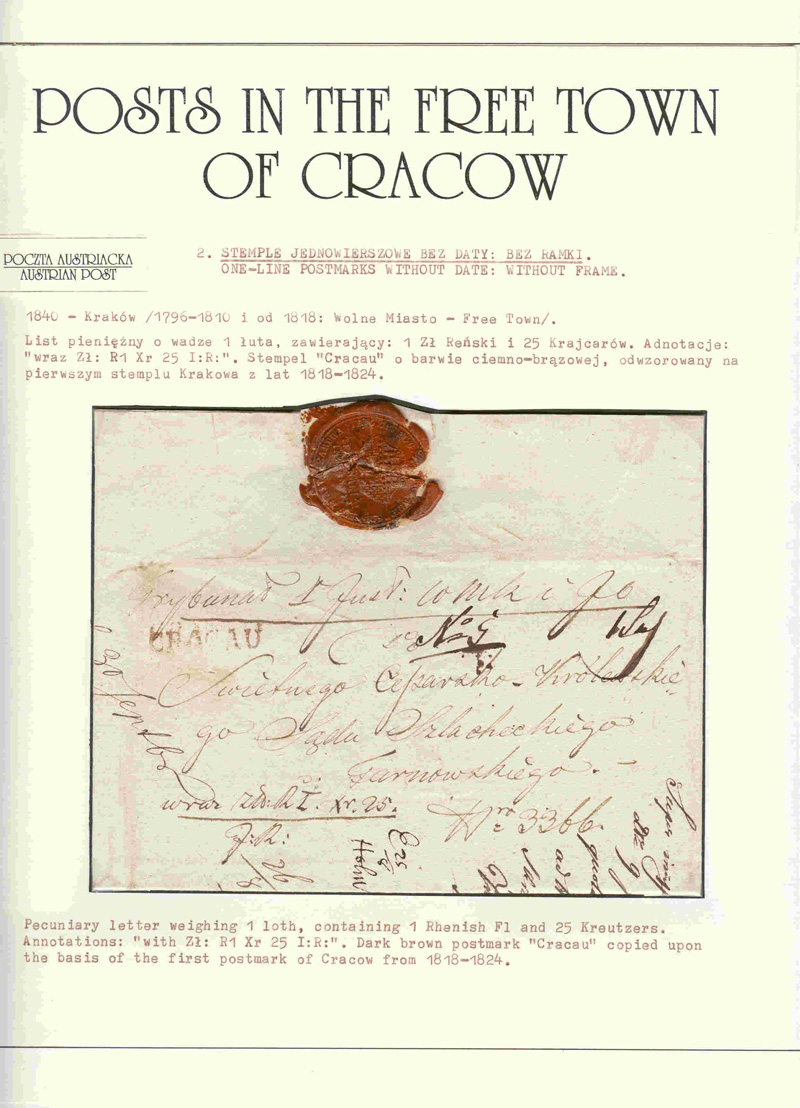 POSTS IN THE FREE TOWN
OF CRACOW
POCZTA AUSTRIACKA
AUSTRIAN POST
2. STEMPLE JEDNOWIERSZOWE BEZ DATY: BEZ RAMKI.
ONE-LINE POSTMARKS WITHOUT DATE: WITHOUT FRAME.
1840 - Kraków /1796-1810 i od 1818: Wolne Miasto - Free Town/.
List pieniężny o wadze 1 łuta, zawierający: 1 Zł Reński i 25 Krajcarów. Adnotacje:
"wraz Zł: R1 Xr 25 I:R:". Stempel "Cracau" o barwie ciemno-brązowej, odwzorowany na
pierwszym stemplu Krakowa z lat 1818-1824.
Trybunał I Just:
CRACAU
No 5
Swietnego Cesarsko-Królewskie
go Sądu Szlacheckiego
Tarnowskiego.-
wraz Zł: R I. Xr. 25.
J:R:
Nro 3366.
25
26
Pecuniary letter weighing 1 loth, containing 1 Rhenish Fl and 25 Kreutzers.
Annotations: "with Zł: R1 Xr 25 I:R:". Dark brown postmark "Cracau" copied upon
the basis of the first postmark of Cracow from 1818-1824.